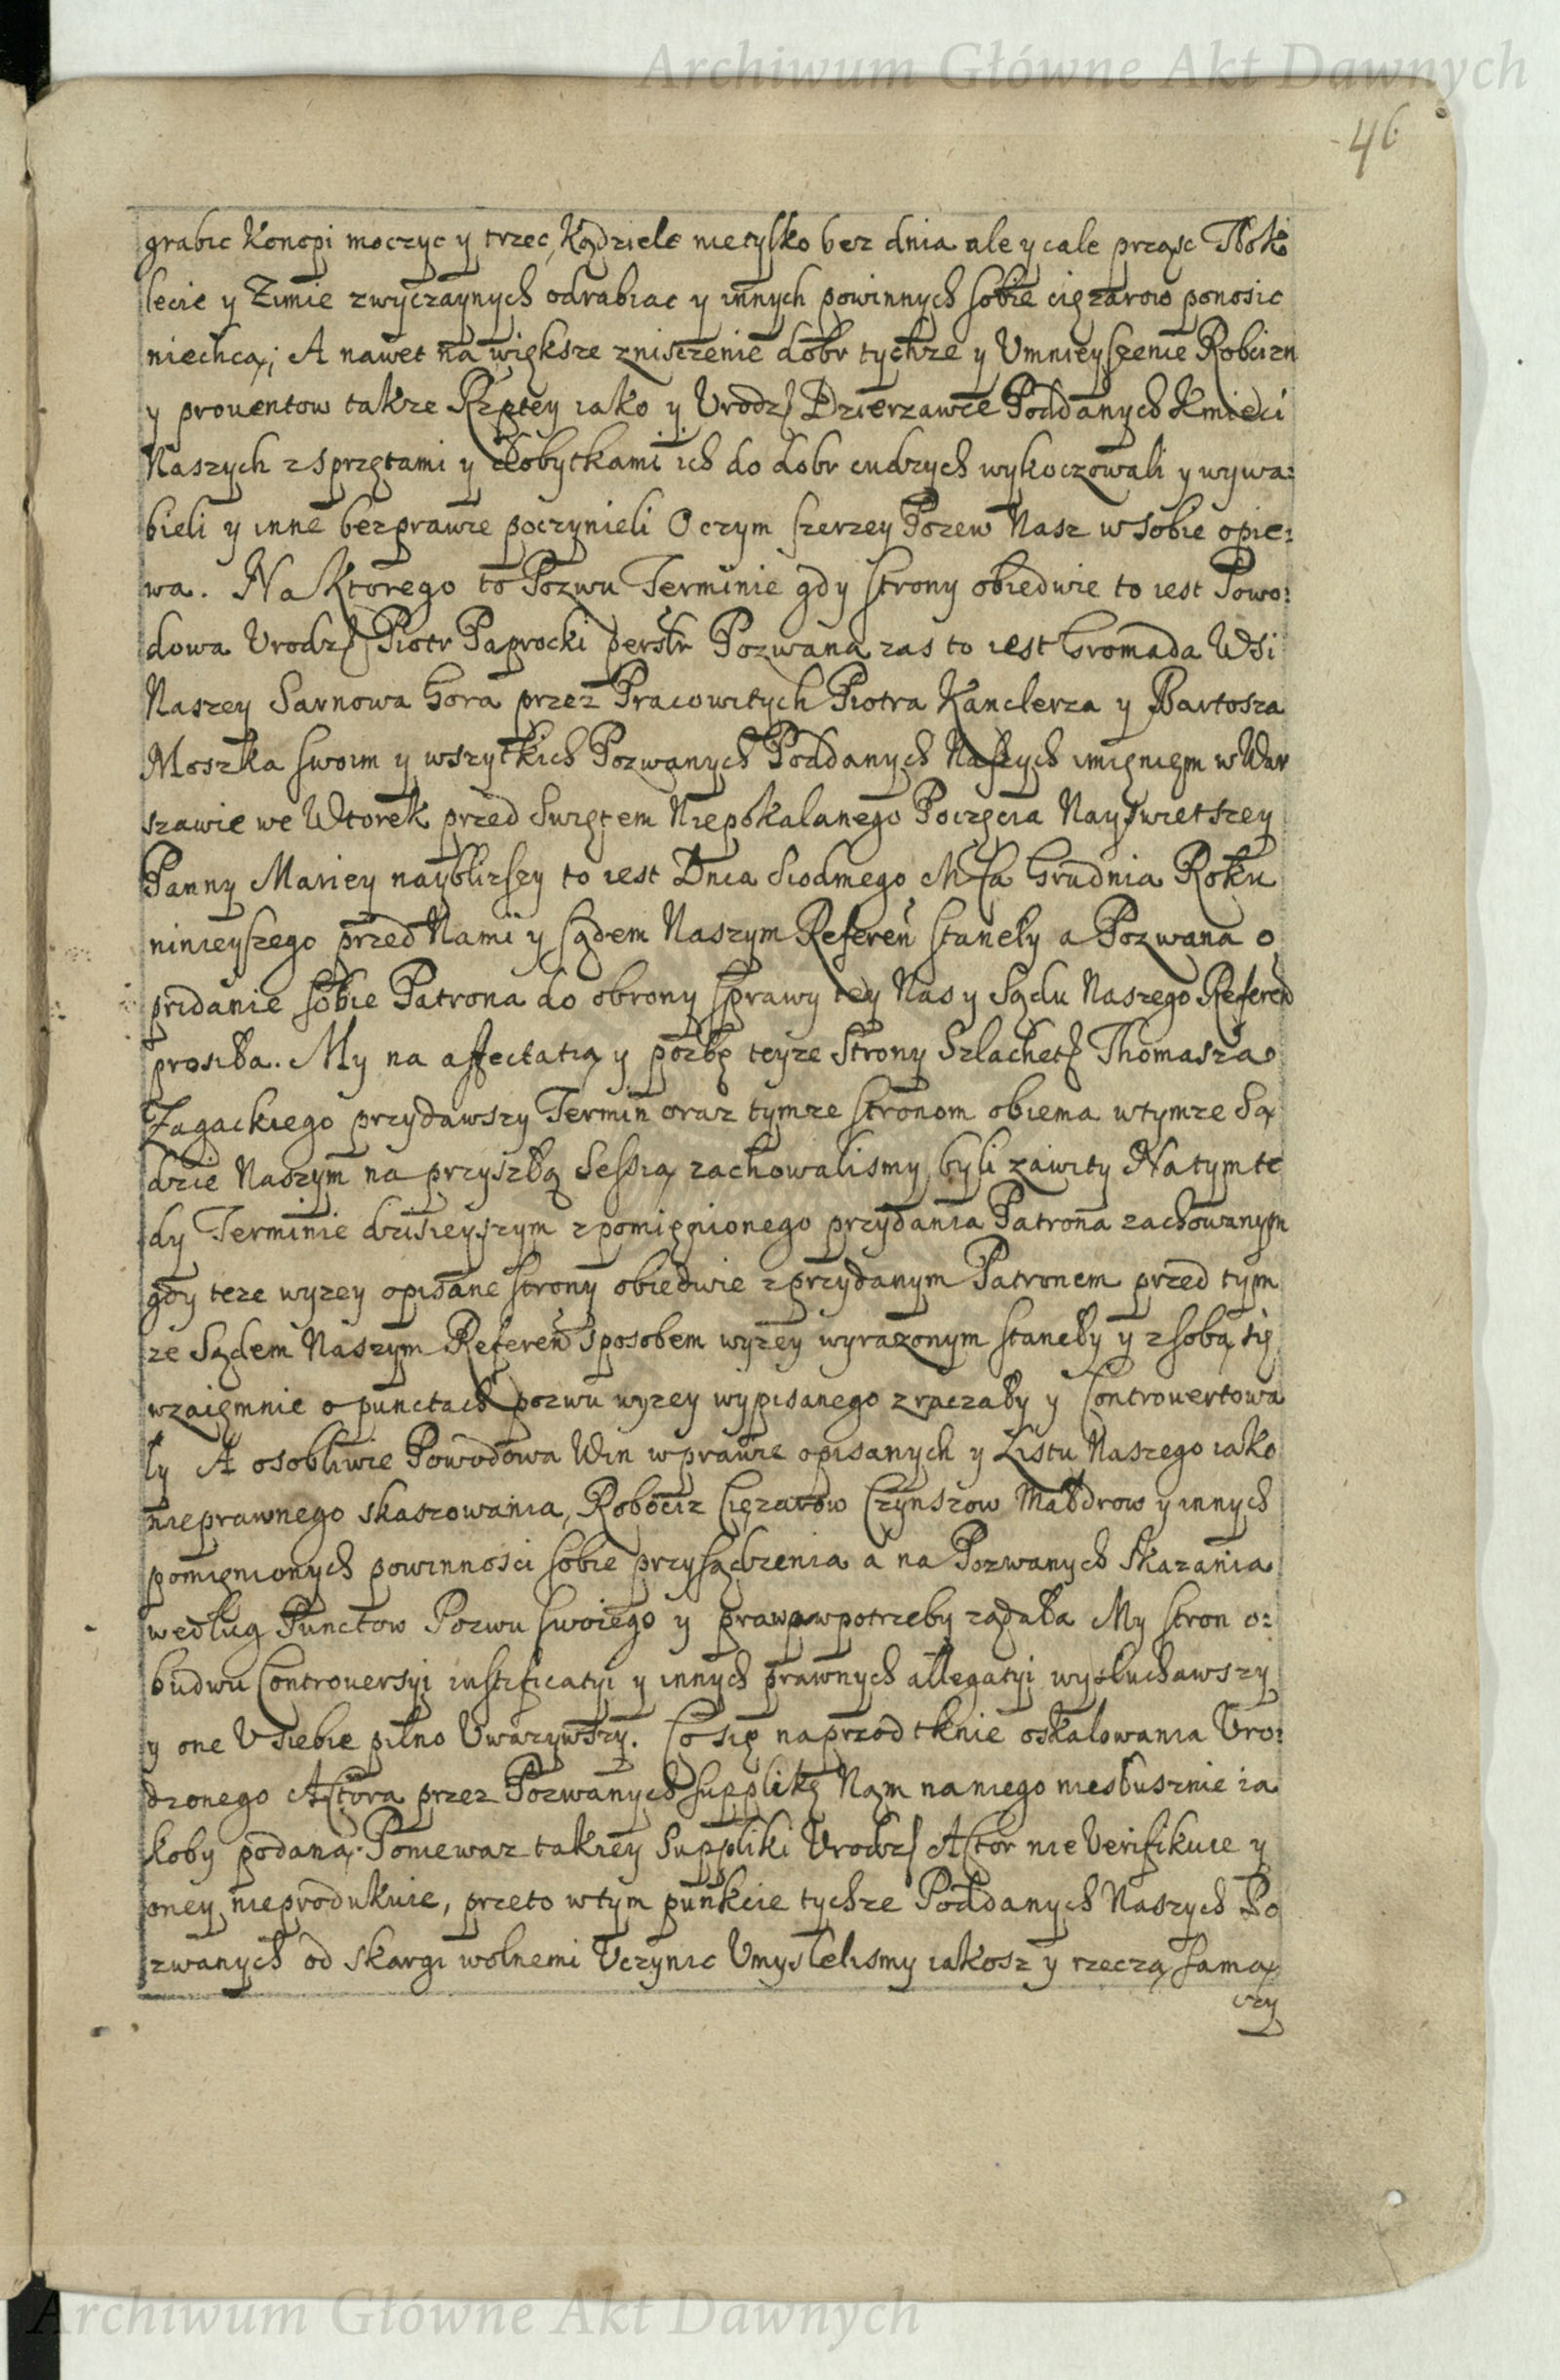 Archiwum Główne Akt Dawnych
46
grabic Konopi moczyc y trzec, Kądziele nietylko bez dnia ale y cale prząsc Tłok
lecie y Zimie zwyczaynych odrabiac y innych powinnych sobie cięzarow ponosic
niechcą; A nawet na większe zniszczenie dobr tychze y Umnieyszenie Robcizn
y prouentow takze Rzptey iako y Urodz Dzierzawce Poddanych Kmieci
Naszych z sprzętami y dobytkami ich do dobr cudzych wykoczowali y wywa:
bieli y inne bezprawie poczynieli O czym szerzey Pozew Nasz w sobie opie:
wa. Na Ktorego to Pozwu Terminie gdy strony obiedwie to iest Powo:
dowa Urodz Piotr Paprocki perstr Pozwana zas to iest Gromada Wsi
Naszey Sarnowa Gora przez Pracowitych Piotra Kanclerza y Bartosza
Moszka swoim y wszytkich Pozwanych Poddanych Naszych imięnięm w War
szawie we Wtorek przed Swiętem Niepokalanego Poczęcia Nayswietszey
Panny Mariey naybliższy to iest Dnia Siodmego Msca Grudnia Roku
ninieyszego przed Nami y sądem Naszym Referen staneły a Pozwana o
pridanie sobie Patrona do obrony sprawy tey Nas y Sądu Naszego Referen
prosiła. My na affectatią y pozbę teyze Strony Szlachet Thomasza
Zagackiego przydawszy Termin oraz tymze stronom obiema wtymze Są
dzie Naszym na przyszłą Sessią zachowalismy byli zawity Na tym te
dy Terminie dzisieyszym z pomięnionego przydania Patrona zachowanym
gdy teze wyzey opisane strony obiedwie z przydanym Patronem przed tym
ze Sądem Naszym Referen sposobem wyzey wyrazonym staneły y z sobą się
wzaięmnie o punctach pozwu wyzey wypisanego zraczały y Controuertowa
ly A osobliwie Powodowa Win w prawie opisanych y Listu Naszego iako
nieprawnego skaszowania, Robociz Cięzarow Czynszow Małdrow y innych
pomięnionych powinnosci sobie przysądzenia a na Pozwanych skazania
według Punctow Pozwu swoiego y prawa wpotrzeby ządała My stron o:
budwu Controuersyi iustificatyi y innych prawnych allegatyi wysłuchawszy
y one U siebie pilno Uwazywszy. Co się naprzod tknie oskalowania Uro:
dzonego Actora przez Pozwanych supplikę Nąm naniego niesłusznie ia
koby podaną. Poniewaz takiey Suppliki Urodz Actor nie Verifikuie y
oney nieprodukuie, przeto wtym punkcie tychze Poddanych Naszych Po
zwanych od skargi wolnemi Uczynic Umyslelismy iakosz y rzeczą samą
Archiwum Główne Akt Dawnych